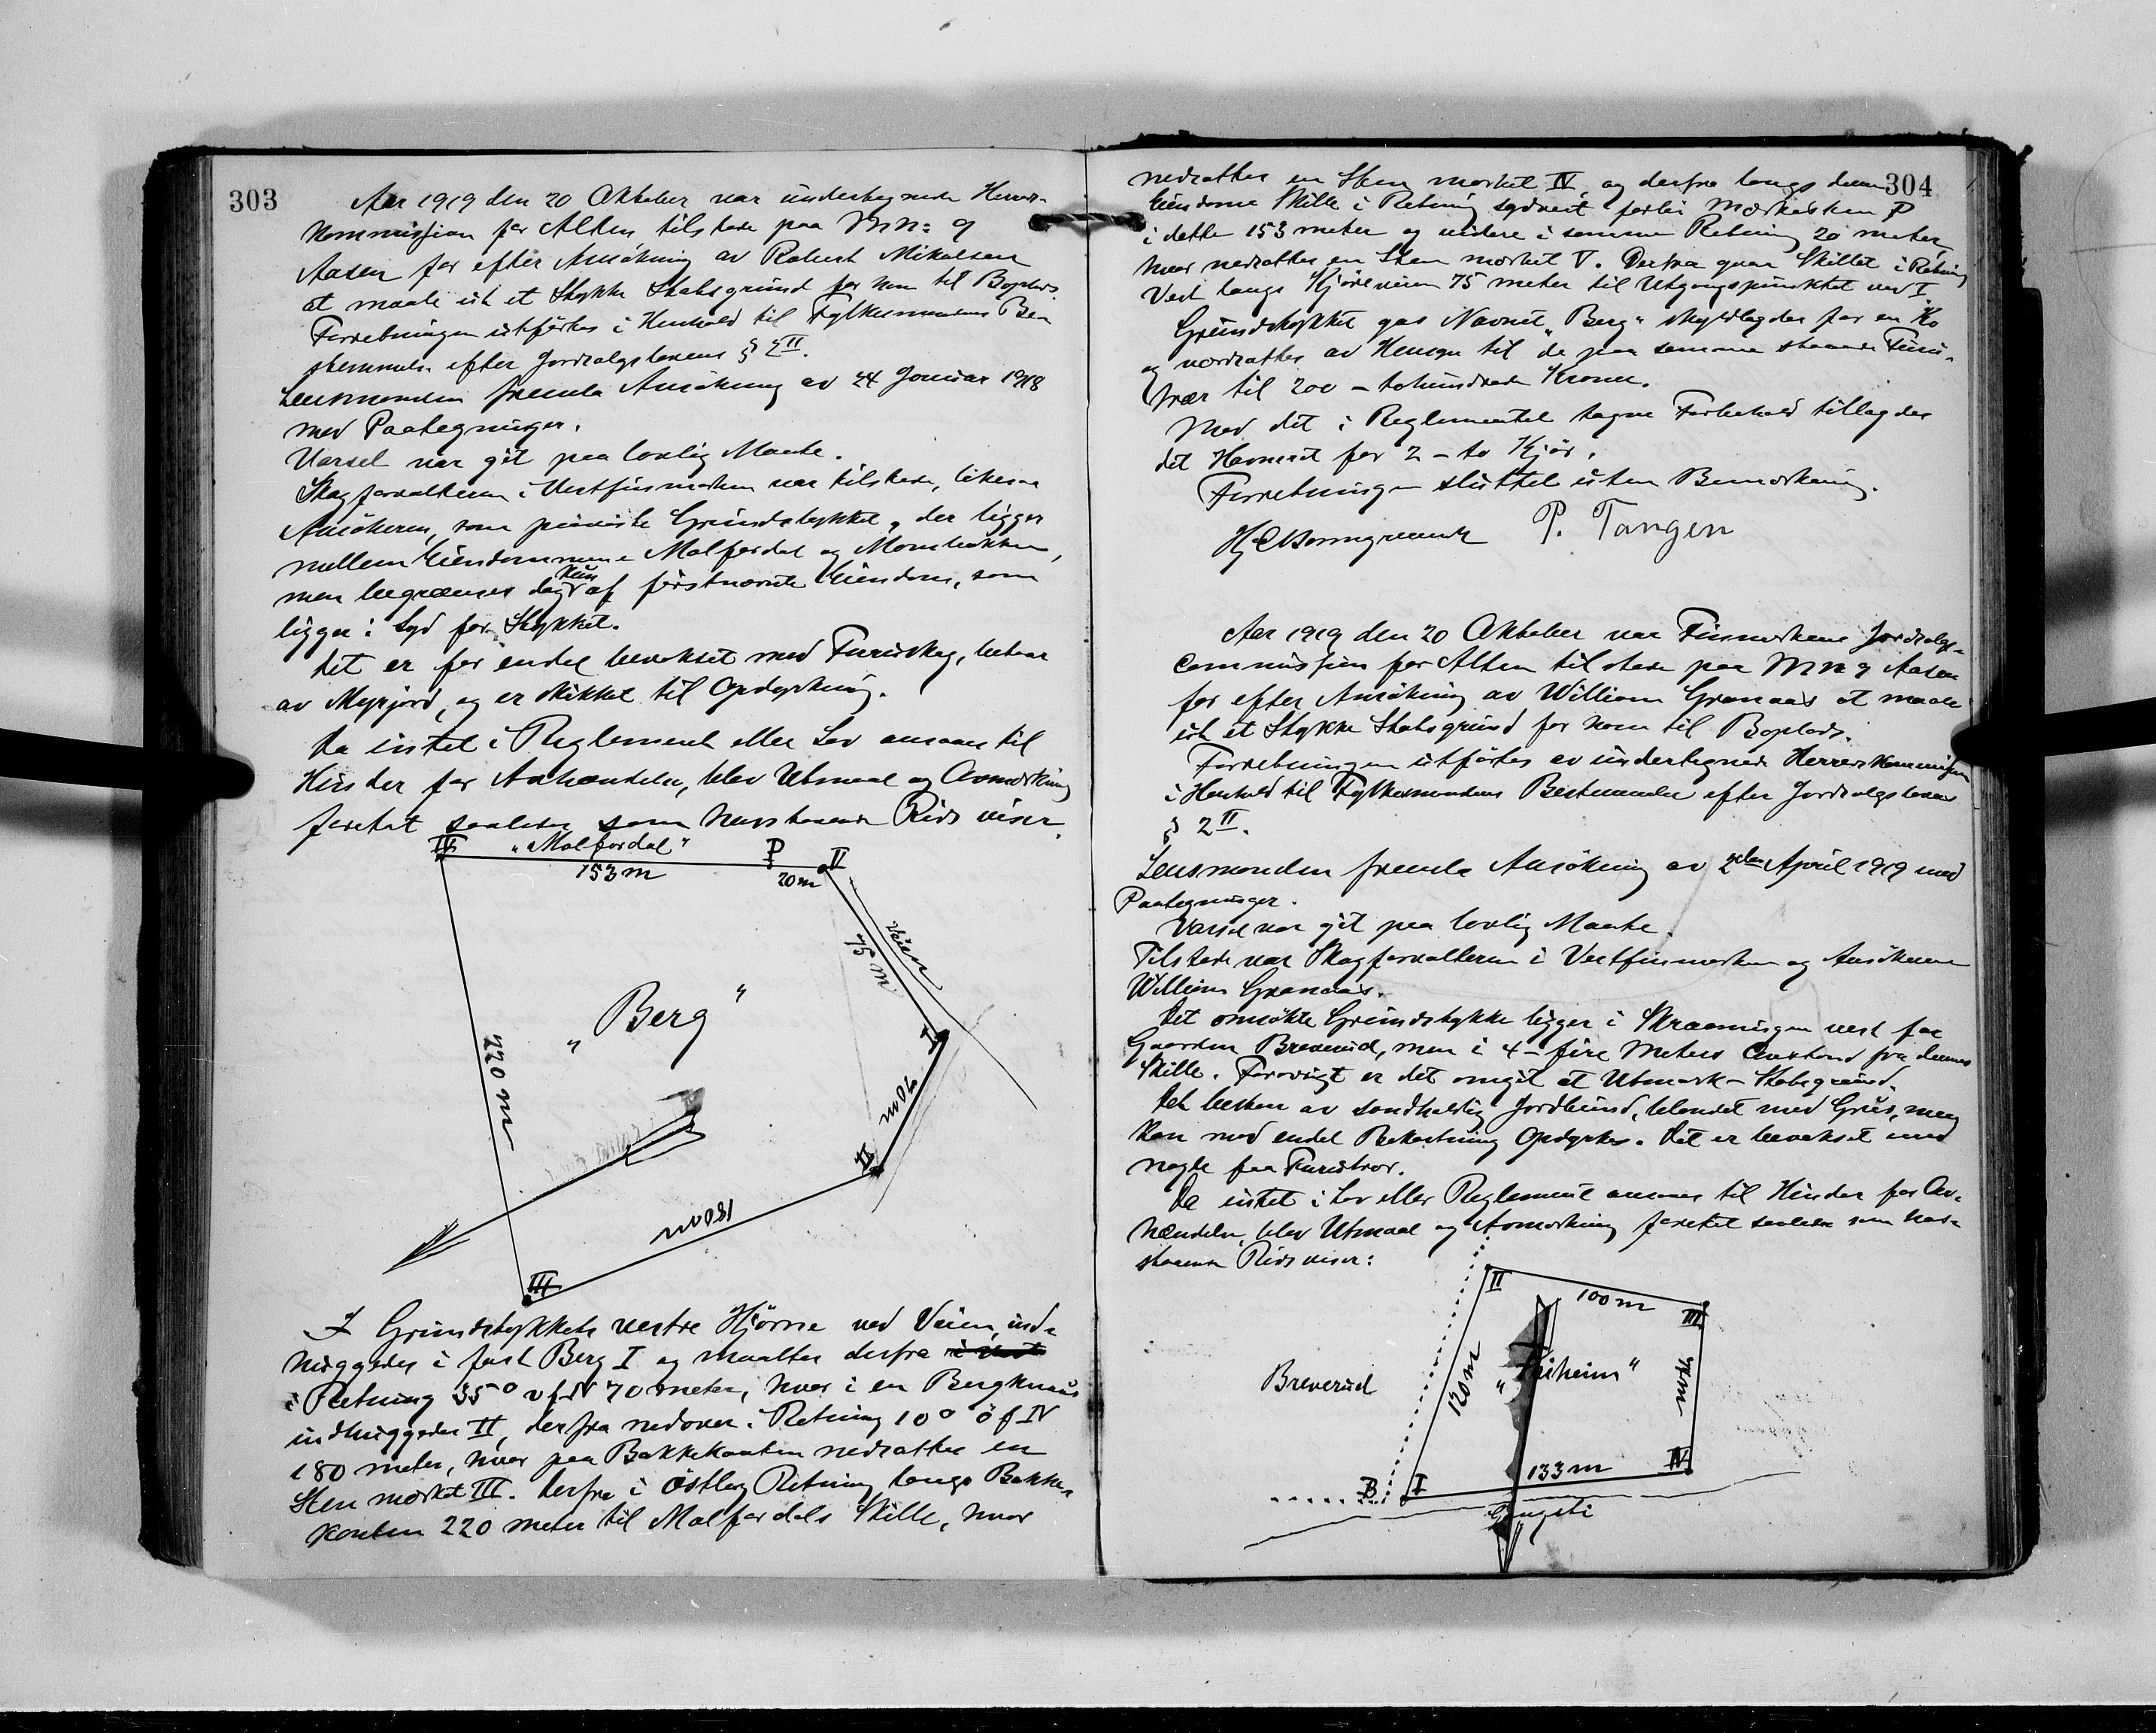 303
Aar 1919 den 20 Oktober var undertegnede Herreds-
kommission for Alten tilstede paa M. n: 9
Aasen for efter Ansökning av Robert Mikalsen
at maale ut et Stykke Statsgrund for ham til Boplads.
Forretningen utförtes i Henhold til Fylkesmandens Be-
stemmelse efter Jordsalgslovens § 2 II.
Lensmanden fremla Ansökning av 24 Januar 1918
med Paategninger.
Varsel var git paa lovlig Maate.
Skogforvalteren i Vestfinmarken var tilstede, likesaa
Ansökeren, som paaviste Grundstykket, der ligger
mellem Eiendommene Malfordal og
men begrænses dog kun af förstnævnte Eiendom, som
ligger i Syd for Stykket.
Det er for endel bevokset med Furuskog, bestaar
av Myrjord, og er skikket til Opdyrkning.
Da intet i Reglement eller Lov ansaaes til
Hinder for Avhændelse, blev Utmaal og Avmerkning
foretat saaledes som hosstaaende Rids viser.
IV "Malfordal" P V
153 m 20 m
Veien
75 m
"Berg"
I
220 m
70 m
II
180 m
III
I Grundstykkets vestre Hjörne ved Veien, ind-
huggedes i fast Berg I og maaltes derfra
i Retning 35° v f N 70 meter, hvor i en Bergknaus
indhuggedes II, derfra nedover i Retning 10° ö f N
180 meter, hvor paa Bakkekanten nedsattes en
Sten merket III. Derfra i östlig Retning langs Bakke-
kanten 220 meter til Malfordals Skille, hvor
304
nedsattes en Sten merket IV, og derfra langs denne
Eiendoms Skille i Retning sydvest forbi Merkesten P
i dette 153 meter og videre i samme Retning 20 meter,
hvor nedsattes en Sten merket V. Derfra gaar Skillet i Retning
Vest langs Kjöreveien 75 meter til Utgangspunktet ved I
Grundstykket gas Navnet "Berg" skyldlagdes for en Ko
og værdsattes av Hensyn til de paa samme staaende Furu-
trær til 200 - tohundrede Kroner.
Med det i Reglementet tagne Forbehold tillagdes
det Havneret for 2 - to Kjör.
Forretningen sluttet uten Bemerkning.
P. Tangen
Aar 1919 den 20 Oktober var Finmarkens Jordsalgs-
commission for Alten tilstede paa M n 9 Aasen
for efter Ansökning av William Granaas at maale
ut et Stykke Statsgrund for ham til Boplads.
Forretningen utförtes av undertegnede Herredskommission
i Henhold til Fylkesmandens Bestemmelse efter Jordsalgslovens
§ 2 II.
Lensmanden fremla Ansökning av 2den April 1919 med
Paategninger.
Varsel var git paa lovlig Maate.
Tilstede var Skogforvalteren i Vestfinmarken og Ansökeren
William Granaas.
Det omsökte Grundstykke ligger i Skraaningen vest for
Gaarden Breverud, men i 4 - fire Meters Avstand fra dennes
Skille. Forövrigt er det omgit at Utmark - Statsgrund.
Det bestaar av sandholdig Jordbund, blandet med Grus, men
kan med endel Bekostning opdyrkes. Det er bevokset med
nogle faa Furutrær.
Da intet i Lov eller Reglement ansaaes til Hinder for Av-
hændelse, blev Utmaal og Avmerkning foretat saaledes som hos-
staaende Rids viser:
II
100 m
III
Breverud
120 m
heim"
74 m
B I
133 m
IV
Gangsti